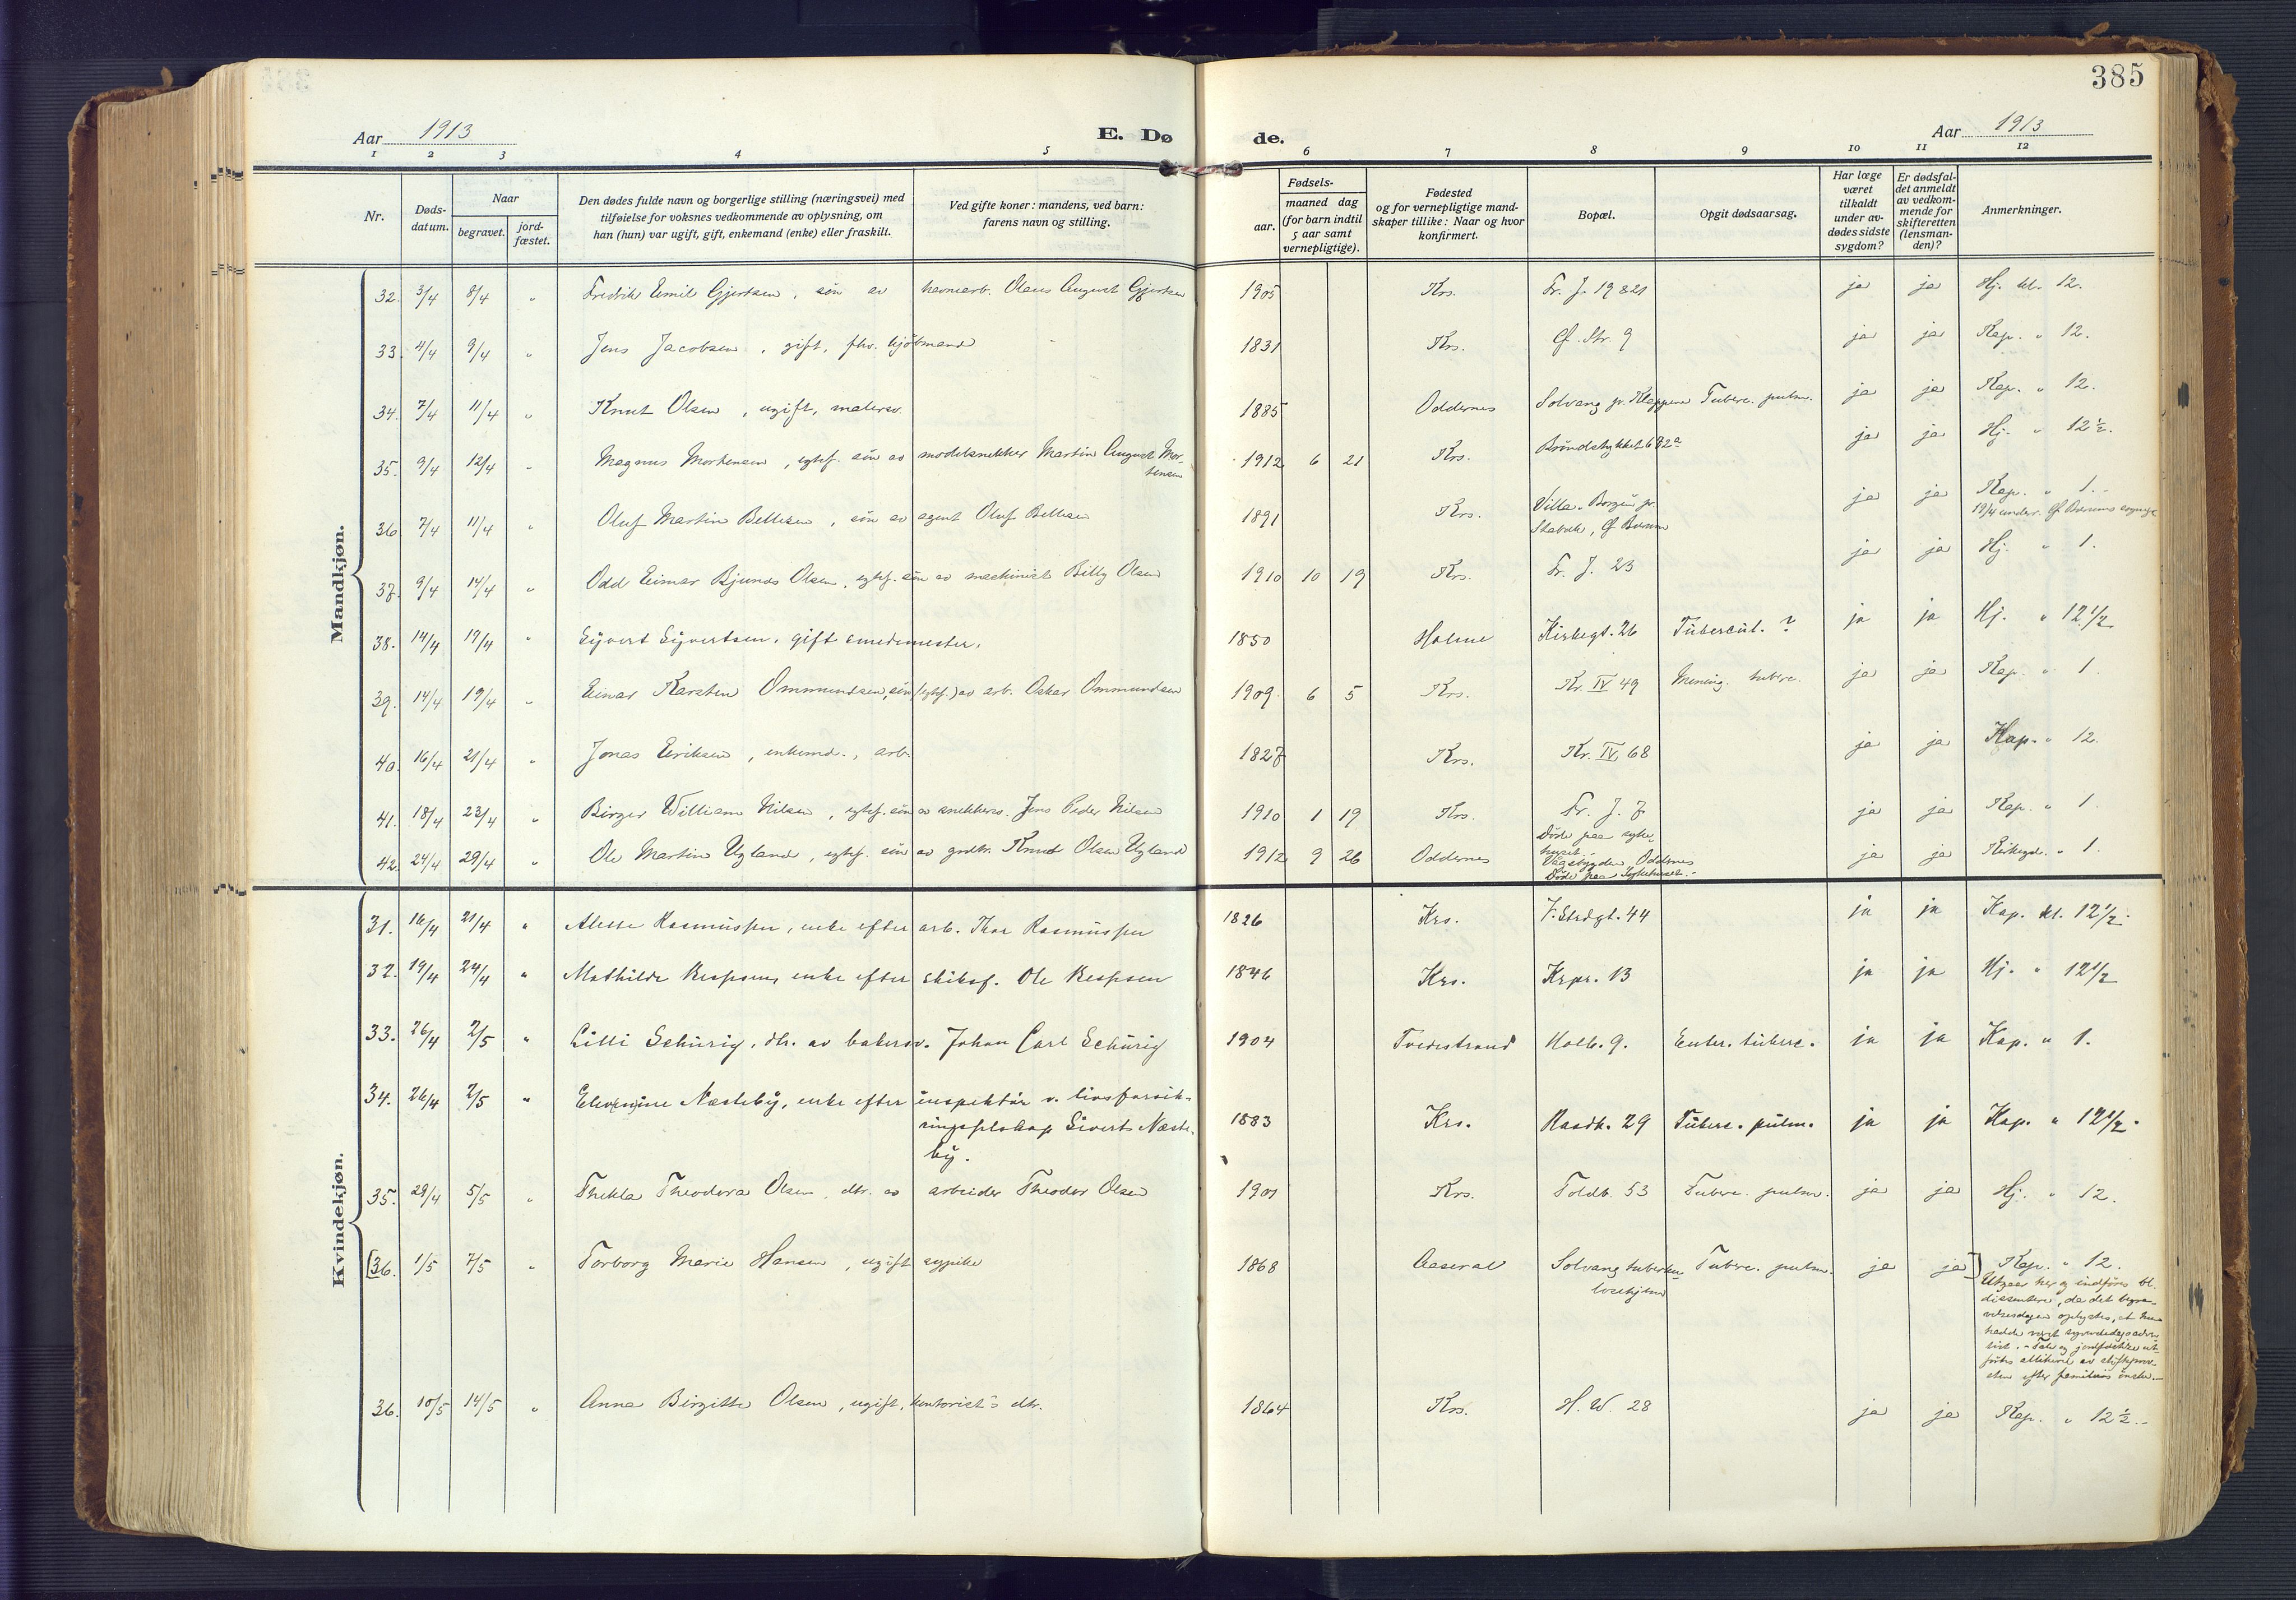 385
Aar 1913 E. Dø de. Aar 1913
1 2 3 4 5 6 7 8 9 10 11 12
Nr.
Døds-
datum.
Naar
begravet.
jord-
fæstet.
Den dødes fulde navn og borgerlige stilling (næringsvei) med
tilføielse for voksnes vedkommende av oplysning, om
han (hun) var ugift, gift, enkemand (enke) eller fraskilt.
Ved gifte koner: mandens, ved barn:
farens navn og stilling.
Fødsels-
aar.
maaned dag
(for barn indtil
5 aar samt
vernepligtige).
Fødested
og for vernepligtige mand-
skaper tillike: Naar og hvor
konfirmert.
Bopæl.
Opgit dødsaarsag.
Har læge
været
tilkaldt
under av-
dødes sidste
sygdom?
Er dødsfal-
det anmeldt
av vedkom-
mende for
skifteretten
(lensman-
den)?
Anmerkninger.
Mandkjøn.
32. 3/4 8/4 " Fredrik Emil Gjertsen, søn av havnearb. Olaus August Gjertsen 1905 Krs. Fr. J. 19 & 21 ja ja Hj. kl. 12.
33. 4/4 9/4 " Jens Jacobsen, gift, fhv. kjøbmand 1831 Krs. Ø. Str. 9 ja ja Kap. " 12.
34. 7/4 11/4 " Knut Olsen, ugift, malersv. 1885 Oddernes Solvang pr. Kleppene Tuberc. pulm. ja ja Kap. " 12.
35. 9/4 12/4 " Magnus Mortensen, egtef. søn av modelsnekker Martin August Mor-
tensen 1912 6 21 Krs. Brøndstykket 682a ja ja Hj. " 12 1/2.
36. 7/4 11/4 " Oluf Martin Bellesen, søn av agent Oluf Bellesen 1891 Krs. Villa Borgen pr.
Stabæk, Ø. Bærum ja ja Kap. " 1.
18/4 under. Ø. Bærums
37. 9/4 14/4 " Odd Eimar Bjunes Olsen, egtef. søn av maskinist Billy Olsen 1910 10 19 Krs. Fr. J. 23 ja ja Hj. " 1.
38. 14/4 19/4 " Syvert Syvertsen, gift smedmester. 1850 Holme Kirkegt. 26 Tubercul. ? ja ja Hj. " 12 1/2
39. 14/4 19/4 " Einar Karsten Ommundsen, søn (egtef.) av arb. Oskar Ommundsen 1909. 6 5 Krs. Kr. IV 49 Mening. tuberc. ja ja Kap. " 1.
40. 16/4 21/4 " Jonas Eriksen, enkemd., arb. 1827 Krs. Kr. IV 68 ja ja Kap. " 12.
41. 18/4 23/4 " Birger William Nilsen, egtef. søn av snekkersv. Jens Peder Nilsen 1910 1 19 Krs. Fr. J. 7
Døde paa syke-
huset. ja ja Kap. " 1.
42. 24/4 29/4 " Ole Martin Ugland, egtef. søn av grdbr. Knud Olsen Ugland 1912 9 26 Oddernes Vågsbygden, Oddernes
Døde paa Sykehuset. ja ja Kirkegd. " 1.
Kvindekjøn.
31. 16/4 21/4 " Alette Rasmussen, enke efter arb. Thor Rasmussen 1826 Krs. V. Strdgt. 44 ja ja Kap. kl. 12 1/2.
32. 19/4 24/4 " Mathilde Jespsens enke efter skibsf. Ole Jespsen 1846 Krs. Krpr. 13 ja ja Hj. " 12 1/2
33. 26/4 2/5 " Lilli Schürig, dtr. av bakersv. Johan Carl Schürig 1904 Tvedestrand Holb. 9. Enter. tuberc. ja ja Kap. " 1.
34. 26/4 2/5 " Næsteby, enke efter inspektør v. livsforsik-
ringsselskap Sivert Næste-
by. 1883 Krs. Raadh. 29 Tuberc. pulm. ja ja Kap. " 12 1/2.
35. 29/4 5/5 " Thekla Theodora Olsen, dtr. av arbeider Theodor Olsen 1901 Krs. Toldb. 53 Tuberc. pulm. ja ja Hj. " 12.
[36. 1/5 7/5 " Torborg Marie Hansen, ugift sypike 1868 Aaseral Solvang tuberku-
losehjem Tuberc. pulm. ja ja] Kap. " 12.
Utgaar her og indføres bl.
dissentere, da det begra-
velsesdagen oplystes, at hun
hadde været syvendedagsadven-
tist. - Tale og jordfæstelse ut-
førtes allikevel av stiftsprov-
sten efter familiens ønske.
36. 10/5 14/5 " Anna Birgitte Olsen, ugift, kontorist's dtr. 1864 Krs. H. W. 28 ja ja Kap. " 12 1/2.